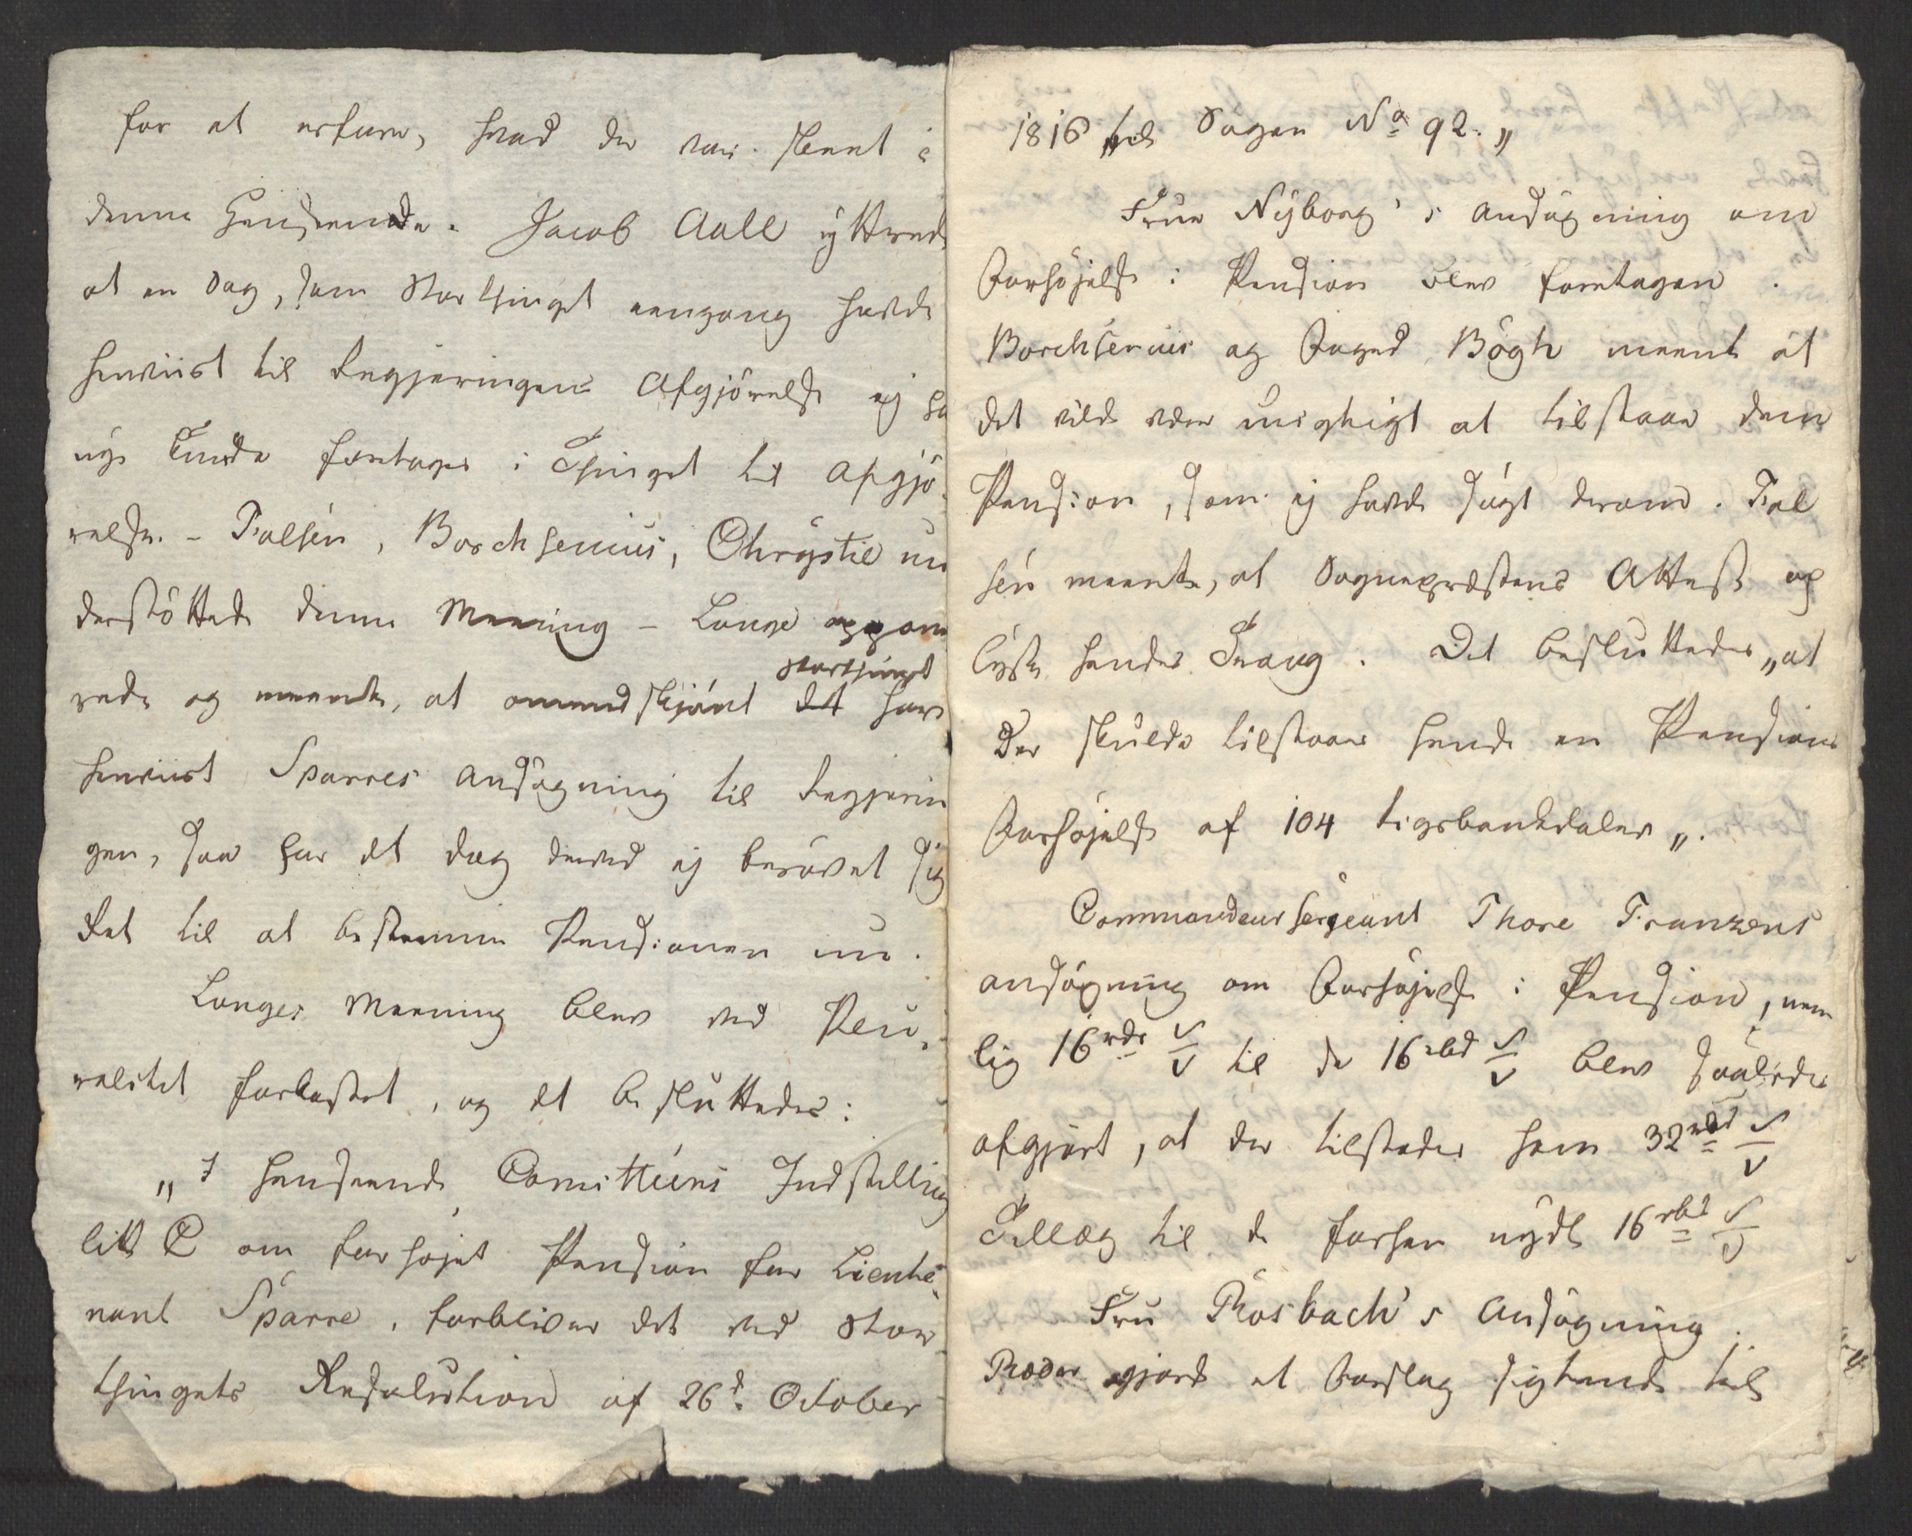 for at erfare, hvad der var skeet i
denne Henseende. Jacob Aall yttrede
at en Sag, som Storthinget eengang havde
henviist til Regjeringens Afgjörelse ej paa
nye kunde foretages i Thinget til Afgjö-
relse. – Falsen, Borchsenius, Christie un
derstöttede denne Mening – Lange oppone
rede og meente, at omendskjönt Storthinget det har
henviist Sparres Ansögning til Regjerin
gen, saa har det dog derved ej berövet sig
Ret til at bestemme Pensionen nu.
Langes Mening blev ved Plu-
ralitet forkastet, og det besluttedes:
„I Henseende Comitteens Indstilling
litt C om forhöjet Pension for Lieute
nant Sparre, forbliver det ved Stor
thingets Resolution af 26d October
1816 til Sagen No 92.„
Frue Nyborg's Ansögning om
Forhöjelse i Pension blev foretagen.
Borchsenius og Foged Bögh meente at
det vilde være urigtigt at tilstaae dem
Pension, som ej havde sögt derom. Fal
sen meente, at Sognepræstens Attest op
lyste hendes Trang. Det besluttedes „at
Der skulde tilstaaes hende en Pensions
Forhöjelse af 104 Rigsbankdaler„.
Commandeursergeant Thore Franzens
Ansögning om Forhöjelse i Pension, nem
lig 16 rbd S/V til de 16 rbd S/V blev saaledes
afgjort, at der tilstedes ham 32 rbd S/V
Tillæg til de forhen nydte 16 rbd S/V
Fru Rosbach's Ansögning.
Roder gjorde et Forslag sigtende til